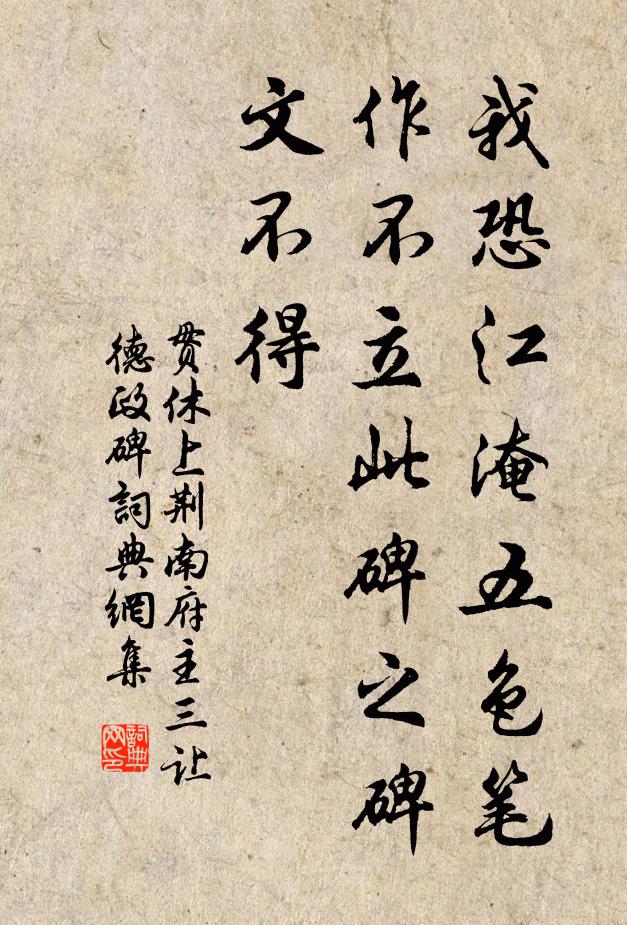 我恐江淹五色笔
作不立此碑之碑
文不得
贯休上荆南府主三让
德政碑詞典網集
詞典
网印